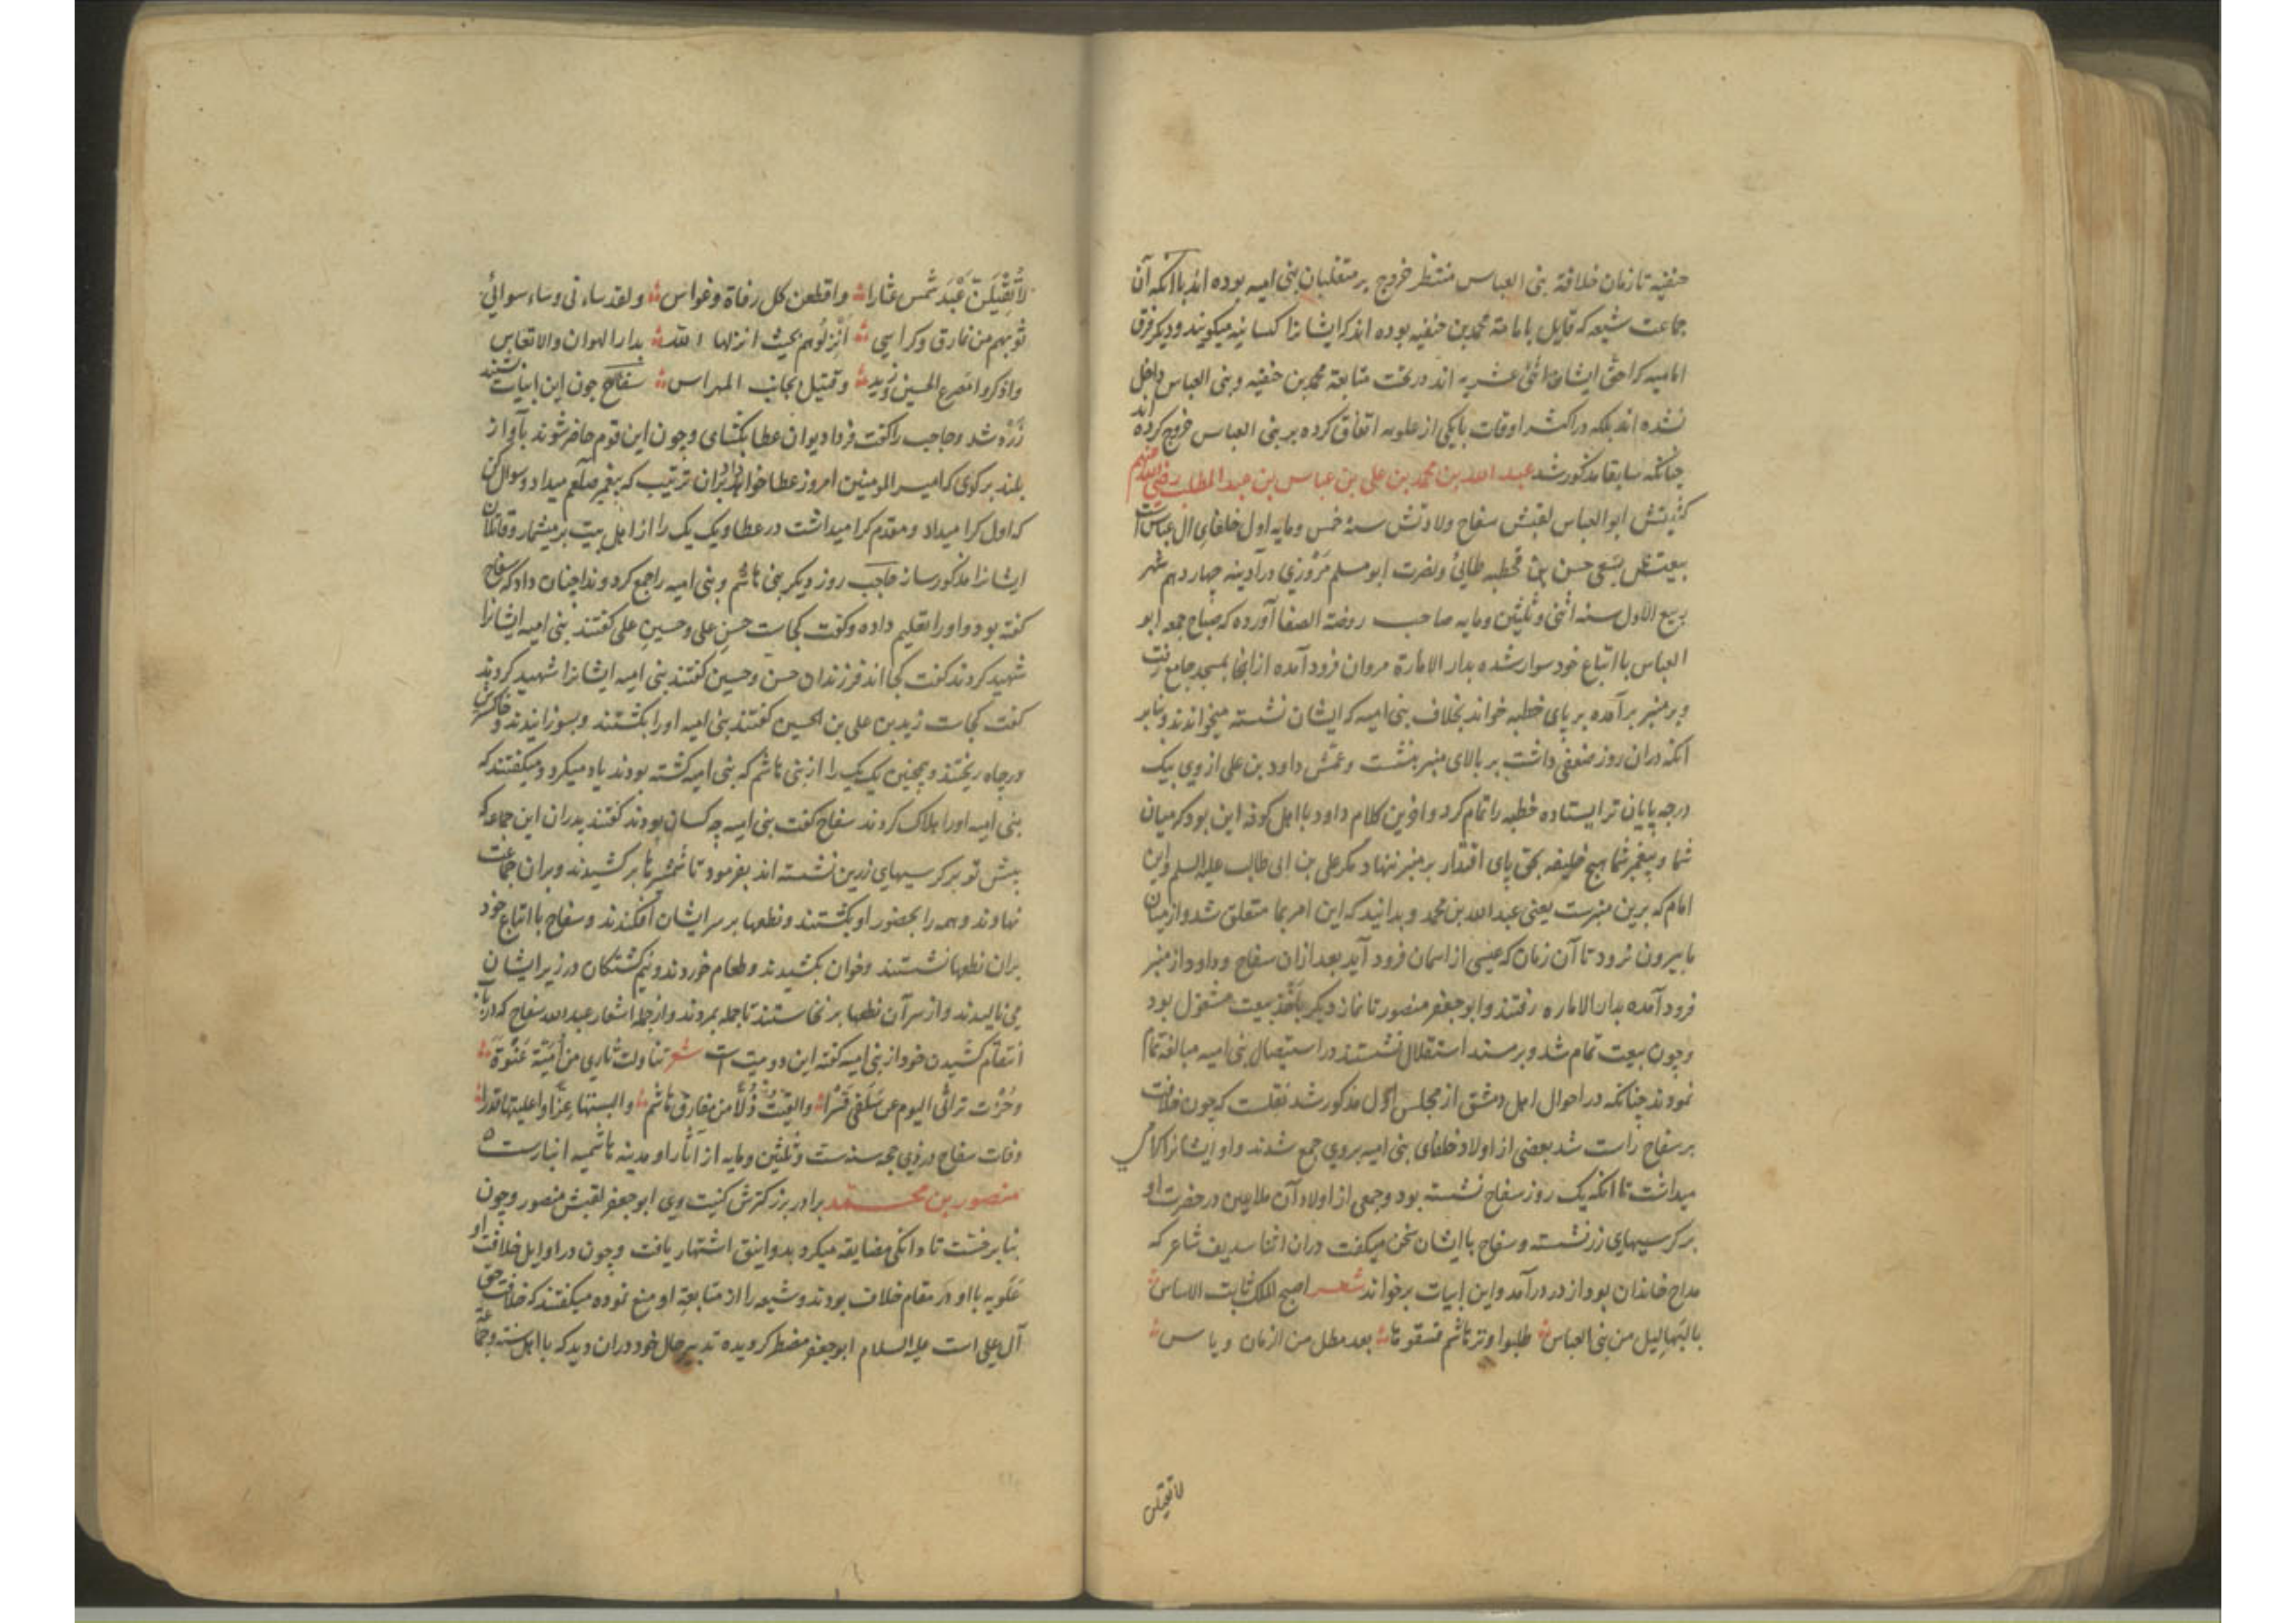 حنفیه تا زمان خلافة بنی العباس منتظر خروج بر متغلبان بنی امیه بوده اند با آنکه آن
جماعت شیعه که قایل بامامة محمد بن حنفیه بوده اند که ایشانرا کسانیه میکویند و دیکر فرق
امامیه که احق ایشان اثنی عشریه اند در تحت متابعة محمد بن حنفیه و بنی العباس داخل
نشده اند بلکه در اکثر اوقات با یکی از علویه اتفاق کرده بر بنی العباس خروج کرده اند
چنانکه سابقا مذکور شد عبد الله بن محمد بن علی بن عباس بن عبد المطلب رضی الله عنهم
کنیتش ابو العباس لقبش سفاح ولادتش سنهٔ خمس و مایه اول خلفای ال عباس است
بیعتش بسعی حسن بن قحطبه طائی و نصرت ابو مسلم مروزی در آدینه چهاردهم شهر
ربیع الاول سنه اثنی و ثلثین و مایه صاحب روضة الصفا آورده که صباح جمعه ابو
العباس با اتباع خود سوار شده بدار الامارة مروان فرود آمده از آنجا بمسجد جامع رفت
و بر منبر برآمده بر پای خطبه خواند بخلاف بنی امیه که ایشان نشسته میخواندند و بنابر
آنکه دران روز ضعفی داشت بر بالای منبر بنشت و عمش داود بن علی از وی بیک
درجه پایان تر ایستاده خطبه را تمام کرد و اخرین کلام داود با اهل کوفه این بود که میان
شما و پیغمبر شما هیچ خلیفه بحق پای اقتدار بر منبر ننهاد مکر علی بن ابی طالب علیه السلم و این
امام که برین منبرست یعنی عبد الله بن محمد و بدانید که این امر بما متعلق شد و از میان
ما بیرون نرود تا آن زمان که عیسی از اسمان فرود آید بعد ازان سفاح و داود از منبر
فرود آمده بدار الاماره رفتند و ابو جعفر منصور تا نماز دیکر باخذ بیعت مشغول بود
و چون بیعت تمام شد و بر مسند استقلال نشستند در استیصال بنی امیه مبالغه تمام
نمودند چنانکه در احوال اهل دمشق از مجلس اول مذکور شد نقلست که چون خلافت
بر سفاح راست شد بعضی از اولاد خلفای بنی امیه بروی جمع شدند و او ایشانرا کرامی
میداشت تا آنکه یک روز سفاح نشسته بود و جمعی از اولاد آن ملاعین در حضرت او
بر کرسیهای زر نشسته و سفاح با ایشان سخن میکفت دران اثنا سدیف شاعر که
مداح خاندان بود از در درآمد و این ابیات برخواند شعر اصبح الملک ثابت الاساس
بالبهالیل من بنی العباس طلبوا وتر هاشم فسقوها بعد مطل من الزمان و یاس
لا تقیلن
لا تقیلن عبد شمس عثارا واقطعن کل رقاة وغواس ولقد ساءنی وساء سوائی
قربهم من نمارق وکراسی انزلوهم بحیث انزلها الله بدار الهوان والاتعاس
واذکروا مصرع الحسین وزید وقتیل بجانب المهراس سفاح چون این ابیات شنید
زرد شد و حاجب را کفت فردا دیوان عطا بکشای و چون این قوم حاضر شوند بآواز
بلند بر کوی که امیر المومنین امروز عطا خواهد داد بران ترتیب که پیغمبر صلعم میداد و سوال کن
که اول کرا میداد و مقدم کرا میداشت در عطا و یک یک را از اهل بیت بر میشمار و قاتلان
ایشانرا مذکور ساز حاجب روز دیکر بنی هاشم و بنی امیه را جمع کرد و ندا چنان داد که سفاح
کفته بود و او را تعلیم داده و کفت کجاست حسن علی و حسین علی کفتند بنی امیه ایشانرا
شهید کردند کفت کجا اند فرزندان حسن و حسین کفتند بنی امیه ایشانرا شهید کردند
کفت کجاست زید بن علی بن الحسین کفتند بنی امیه او را بکشتند و بسوزانیدند و خاکسترش
در چاه ریختند و همچنین یک یک را از بنی هاشم که بنی امیه کشته بودند یاد میکرد و میکفتند که
بنی امیه او را هلاک کردند سفاح کفت بنی امیه چه کسان بودند کفتند پدران این جماعه که
پیش تو بر کرسیهای زرین نشسته اند بفرمود تا شمشیرها بر کشیدند و بران جماعت
نهادند و همه را بحضور او بکشتند و نطعها بر سر ایشان افکندند و سفاح با اتباع خود
بران نطعها نشستند و خوان بکشیدند و طعام خوردند و نیم کشتکان در زیر ایشان
می نالیدند و از سر آن نطعها بر نخاستند تا جمله بمردند و از جمله اشعار عبد الله سفاح که در باب
انتقام کشیدن خود از بنی امیه کفته این دو بیت است شعر تناولت ثاری من امیة عنوة
وحزت تراثی الیوم عن سلفی قسرا والقیت ذلا من مفارق هاشم والبستها عزا واعلیتها قدرا
وفات سفاح در ذی حجه سنه ست و ثلثین و مایه از آثار او مدینه هاشمیه انبارست
منصور بن محمد برادر بزرکترش کنیت وی ابو جعفر لقبش منصور و چون
بنا بر خست تا دانکی مضایقه میکرد بدوانیق اشتهار یافت و چون در اوایل خلافت او
علویه با او در مقام خلاف بودند و شیعه را از متابعة او منع نموده میکفتند که خلافت حق
آل علی است علیه السلام ابو جعفر مضطر کردیده تدبیر حال خود دران دید که با اهل سنة و جماعة